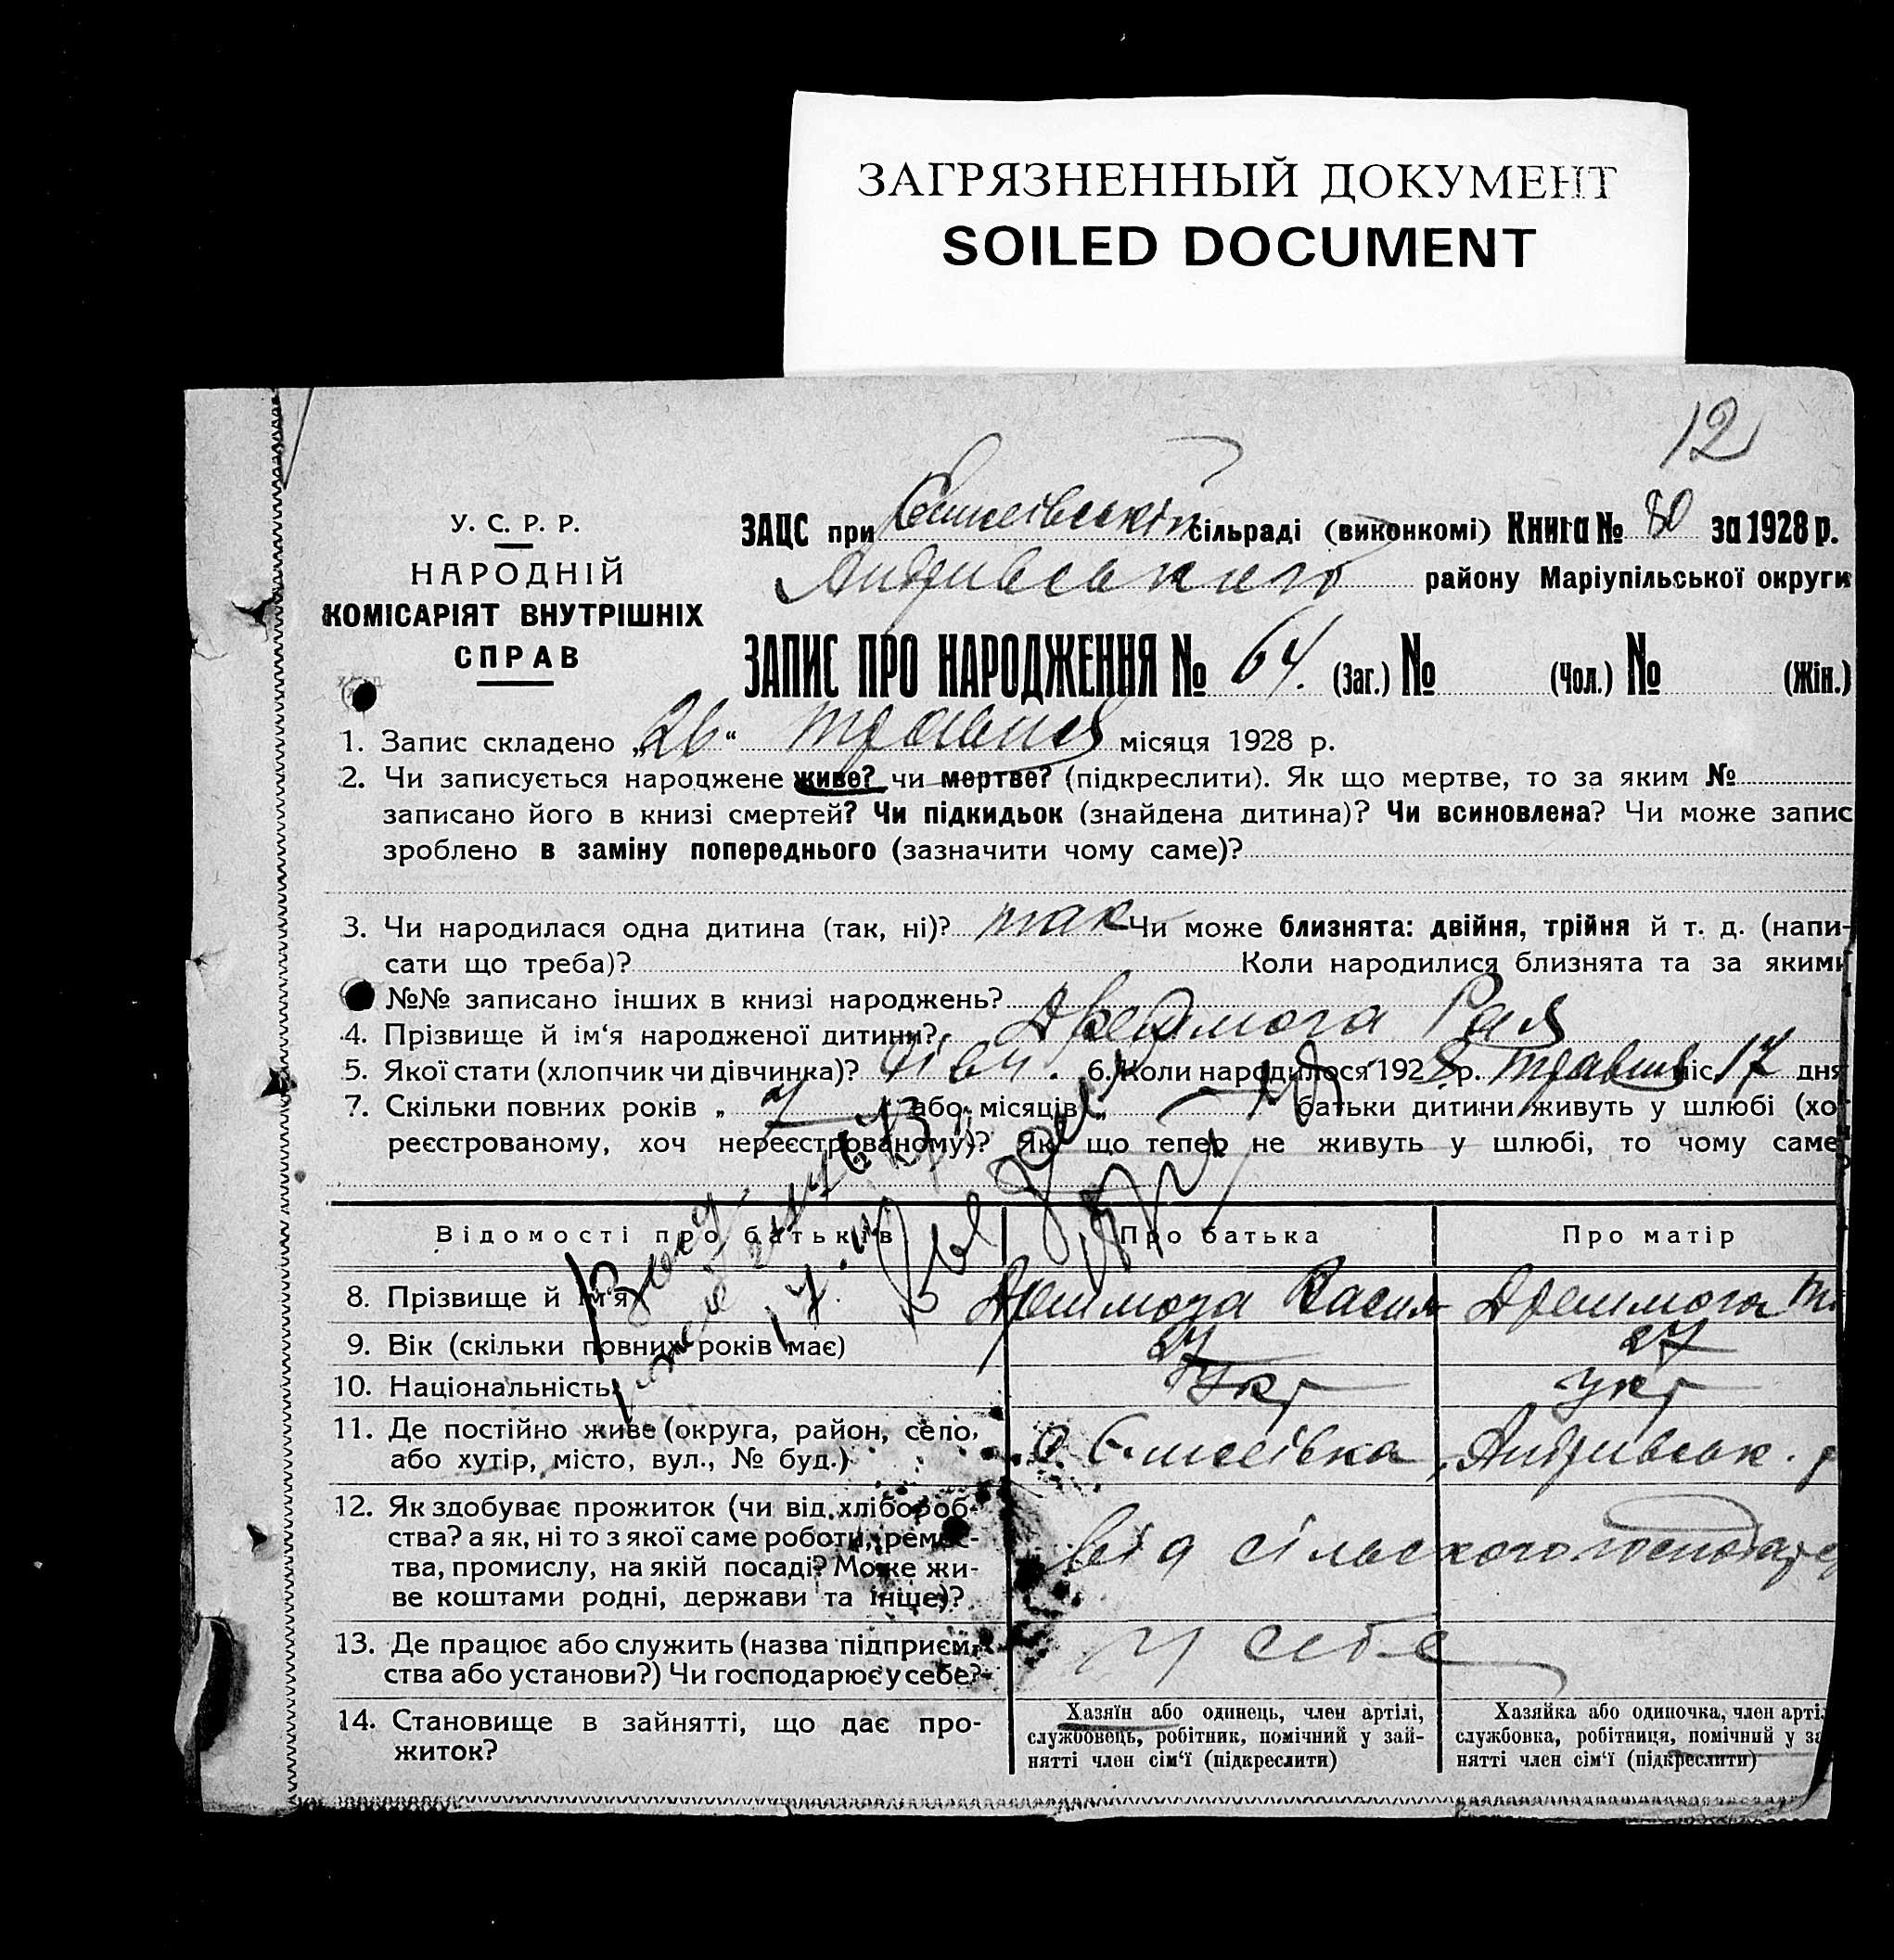 ЗАГРЯЗНЕННЫЙ ДОКУМЕНТ
SOILED DOCUMENT
12
У. С. Р. Р.
НАРОДНІЙ
КОМІСАРІЯТ ВНУТРІШНІХ
СПРАВ
ЗАЦС при Єлисеівській сільраді (виконкомі) Книга № 80 за 1928 р.
Андривського району Маріупільської округи
ЗАПИС ПРО НАРОДЖЕННЯ № 64. (Заг.) № (Чол.) № (Жін.)
1. Запис складено „26“ травня місяця 1928 р.
2. Чи записується народжене живе? чи мертве? (підкреслити). Як що мертве, то за яким №
записано його в книзі смертей? Чи підкидьок (знайдена дитина)? Чи всиновлена? Чи може запис
зроблено в заміну попереднього (зазначити чому саме)?
3. Чи народилася одна дитина (так, ні)? так Чи може близнята: двійня, трійня й т. д. (напи-
сати що треба)? Коли народилися близнята та за якими
№№ записано інших в книзі народжень?
4. Прізвище й ім‘я народженої дитини? Дрешмога Рая
5. Якої стати (хлопчик чи дівчинка)? дівч. 6. Коли народилося 1928 р. травня міс. 17 дня
7. Скільки повних років „ 7 “ або місяців „ “ батьки дитини живуть у шлюбі (хоч
реєстрованому, хоч нереєстрованому)? Як що тепер не живуть у шлюбі, то чому саме
Відомості про батьків Про батька Про матір
8. Прізвище й ім‘я Дрешмога Васил Дрешмога
9. Вік (скільки повних років має) 27 27
10. Національність укр укр
11. Де постійно живе (округа, район, село, С. Єлисеівка, Андривськ. р
або хутір, місто, вул., № буд.)
12. Як здобуває прожиток (чи від хлібороб-
ства? а як, ні то з якої саме роботи, ремес- від сільского господар
тва, промислу, на якій посаді? Може жи-
ве коштами родні, держави та інше)?
13. Де працює або служить (назва підприєм- у себе
ства або установи?) Чи господарює у себе?
14. Становище в зайнятті, що дає про-
житок?
Хазяїн або одинець, член артілі,
службовець, робітник, помічний у зай-
нятті член сім‘ї (підкреслити)
Хазяйка або одиночка, член арті
службовка, робітниця, помічний у за
нятті член сім‘ї (підкреслити)